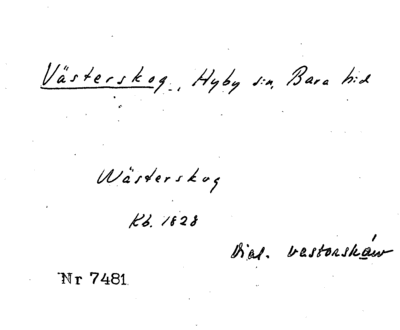 Västerskog, Hyby s:n, Bara h:d
Wästerskog
Kb. 1828
Dial. vastorskáw
Nr 7481